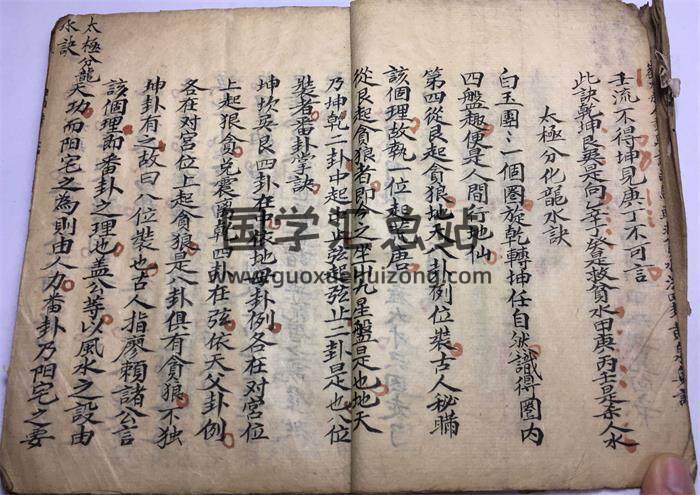 壬流不得坤見庚丁不可言
此訣乾坤艮巽是向乙辛丁癸是救貧水甲庚丙壬是杀人水
太極分化龍水訣
白玉團〻一個圈旋乾轉坤任自然識得圈内
四盤趣便是人間行地仙
第四從艮起貪狼地天八卦例位裝古人秘瞞
該個理故執一位起
唐
從艮起貪狼者即今之坐
九星盤是也地天
乃坤乾二卦中起
止弦起弦止二卦是也
位
裝者番卦掌訣
坤坎
艮四卦在中依地母卦例各在对宫位
上起狼貪兌震離乾四卦在弦依天父卦例
各在对宫位上起貪狼是八卦俱有貪狼不独
坤卦有之故曰八位裝也古人指廖賴諸公言
該個理即番卦之理也盖公等以風水之設由
天功而陽宅之為則由人力番卦乃陽宅之要
太極分龍
水訣
国学汇总站
www.guoxuehuizong.com